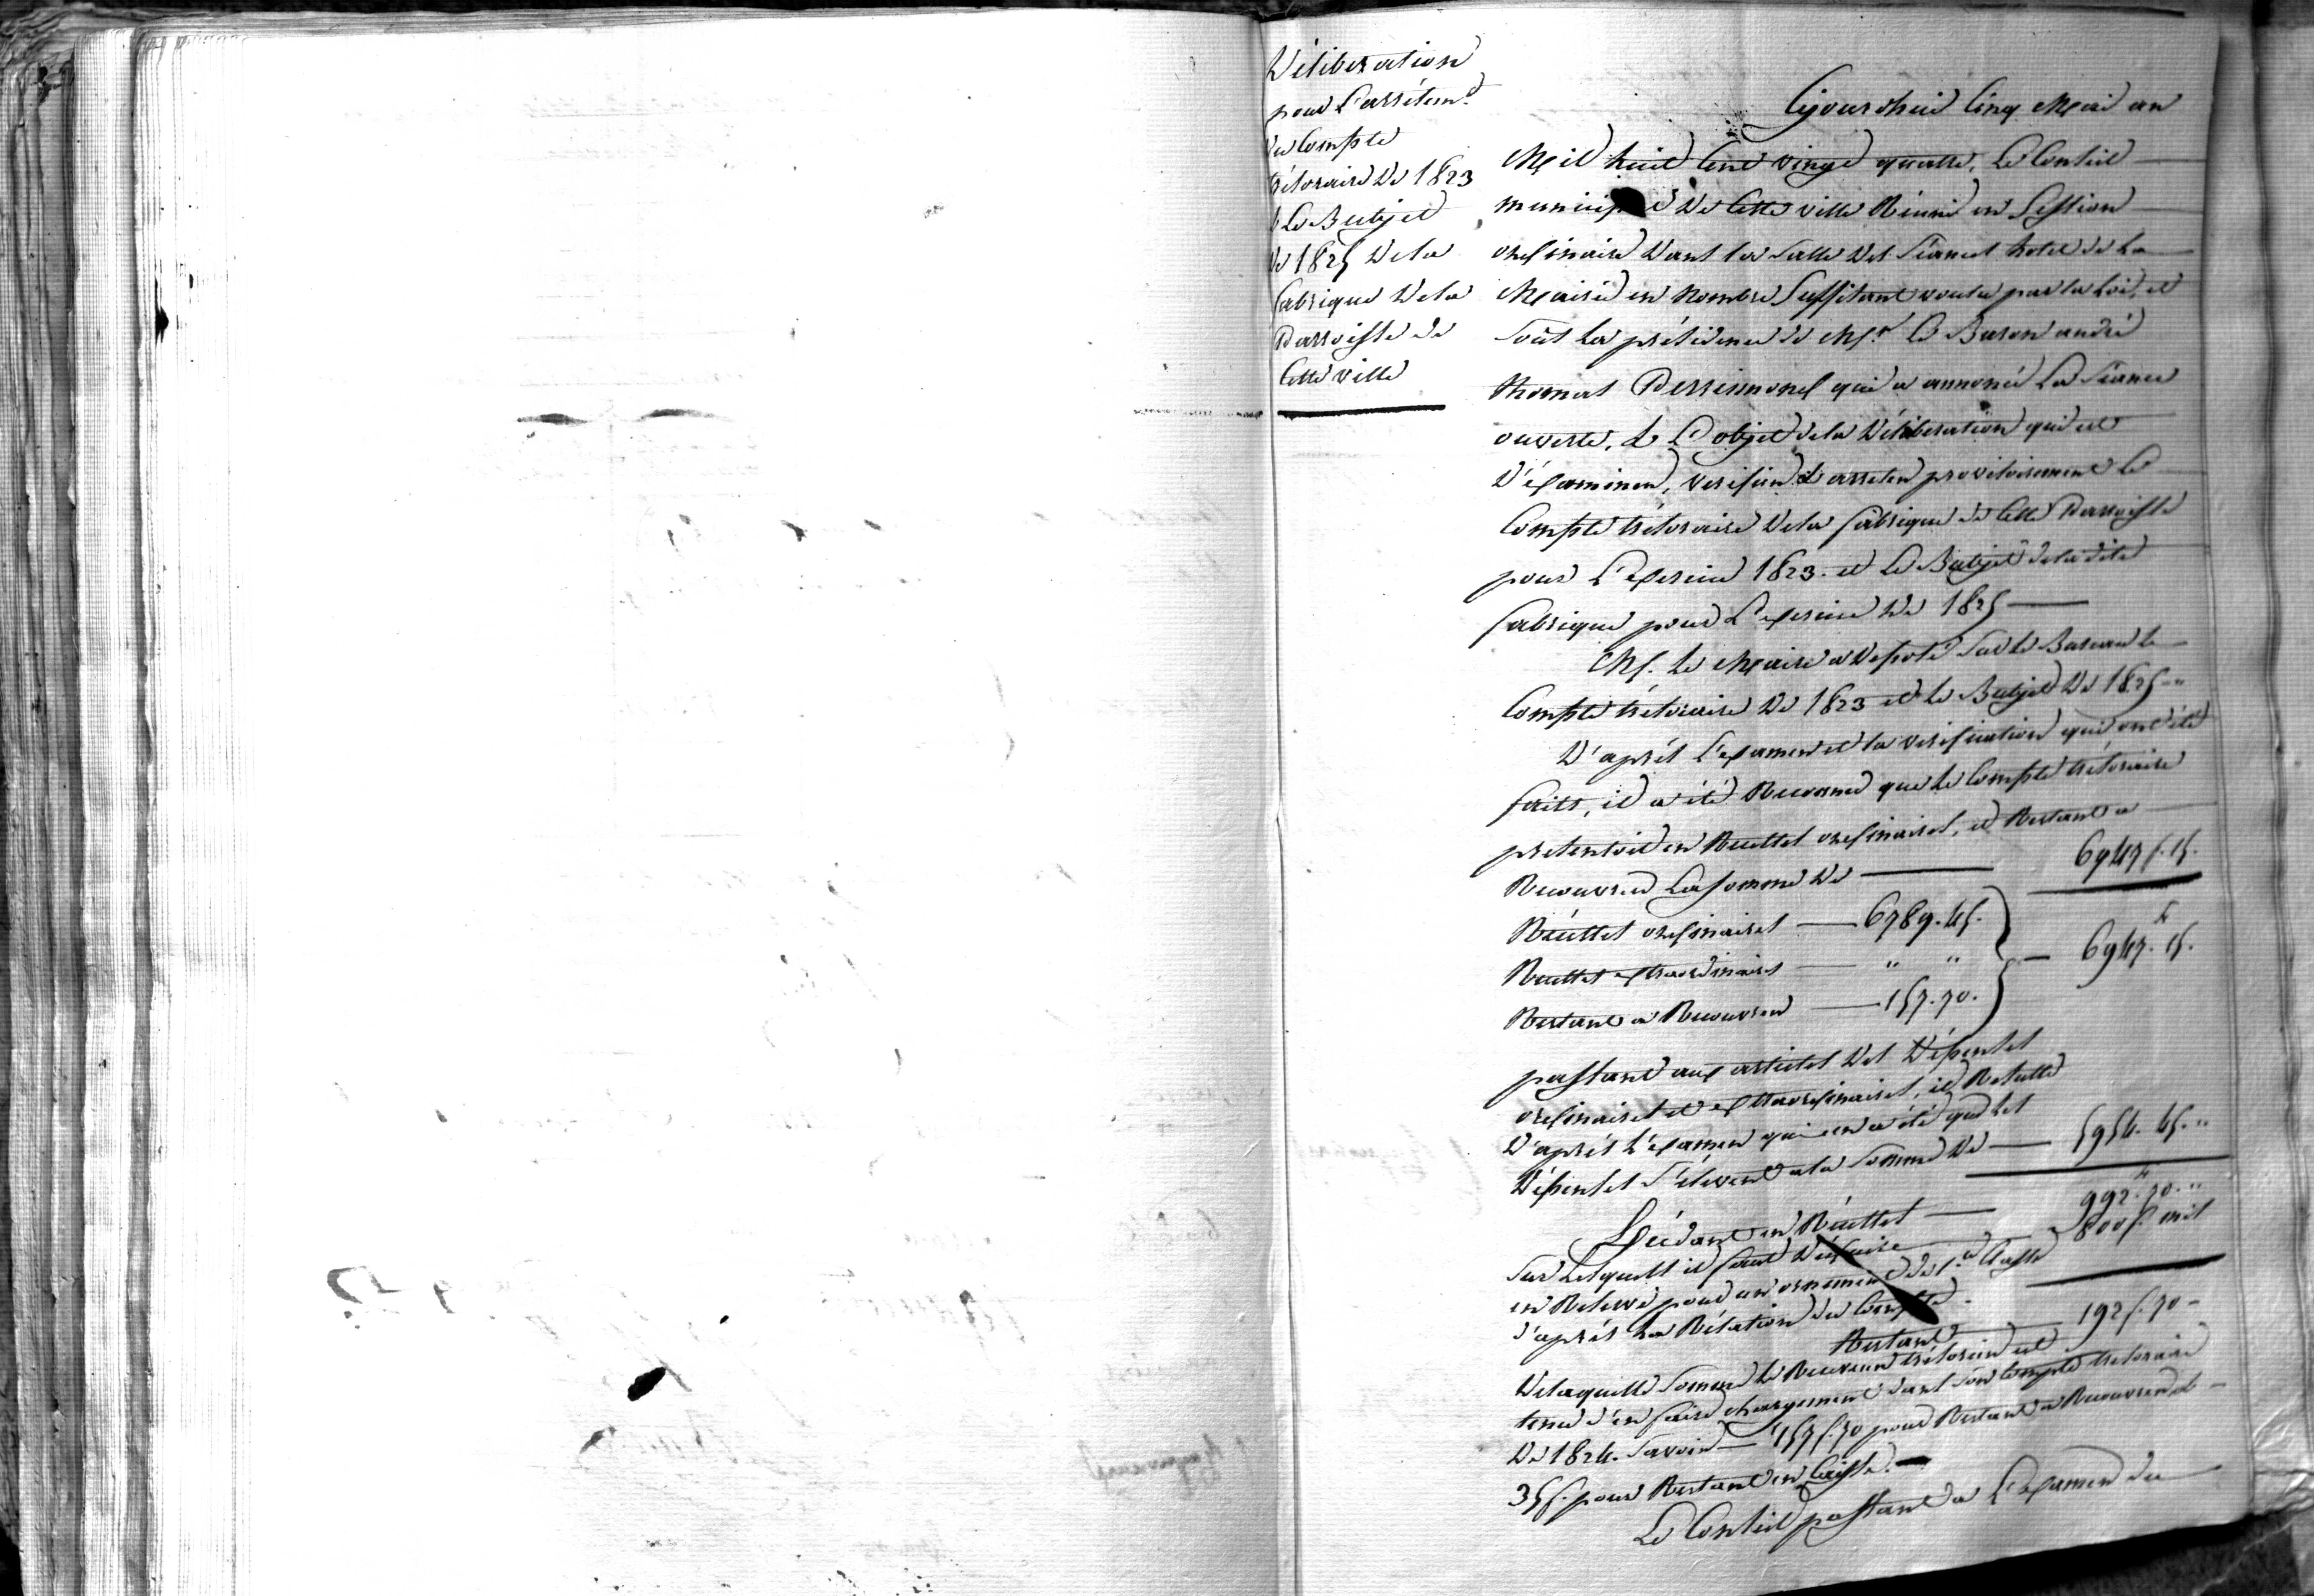 Déliberation
pour L'arrétemt
du Compte
trésoraire de 1823
& Le Budjet
de 1825 de la
fabrique de la
Parroisse de
Cette ville
Cejourdhui Cinq Mai an
Mil huit Cent vingt quatre, Le Conseil
municipal de Cette ville Réuni en Session
ordinaire dans la Salle des Séances hotel de La
Mairie en Nombre Suffisant voulu par la Loi, et
Sous La présidence de Mr. Le Baron andré
thomas Perrimond qui a annoncé La Séance
ouverte, & L'objet de la Déliberation qui est
D'éxaminer, verifier & arreter provisoirement Le
Compte trésoraire de la fabrique de Cette Parroisse
pour L'exercice 1823. et Le Budjet de la dite
fabrique pour L'exercice de 1825
M. Le Maire a déposé Sur Le Bureau le
Compte trésoraire de 1823 et le Budjet de 1825
D'aprés L'examen et la verification qui ont été
faits, il a été Reconnu que le Compte trésoraire
presentoit en Recettes ordinaires, et Restant a
Recouvrer La Somme de 6947 f. 15.
Récettes ordinaires 6789. 45.
Recettes extraordinaires " " 6947. 15.
Restant a Recouvrer 157. 70.
passant aux articles des Dépenses
ordinaires et extraordinaires, il Resulte
D'aprés L'examen qui en a été que les
Dépenses S'élevent a la Somme de 5954. 45. "
Excédant en Récettes 992. 70. "
Sur Lesquels il faut Déduire 800 f. mis
en Reserve pour un ornement de 1re Classe
d'aprés La Rélation du Compte
Restant 192 f. 70
De laquelle Somme Le Receveur trésorier est
tenu d'en faire chargement dans Son Compte trésoraire
De 1824. Savoir 157 f. 70 pour Restant a Recouvrer &
35 f. pour Restant en Caisse.
Le Conseil passant a L'examen du